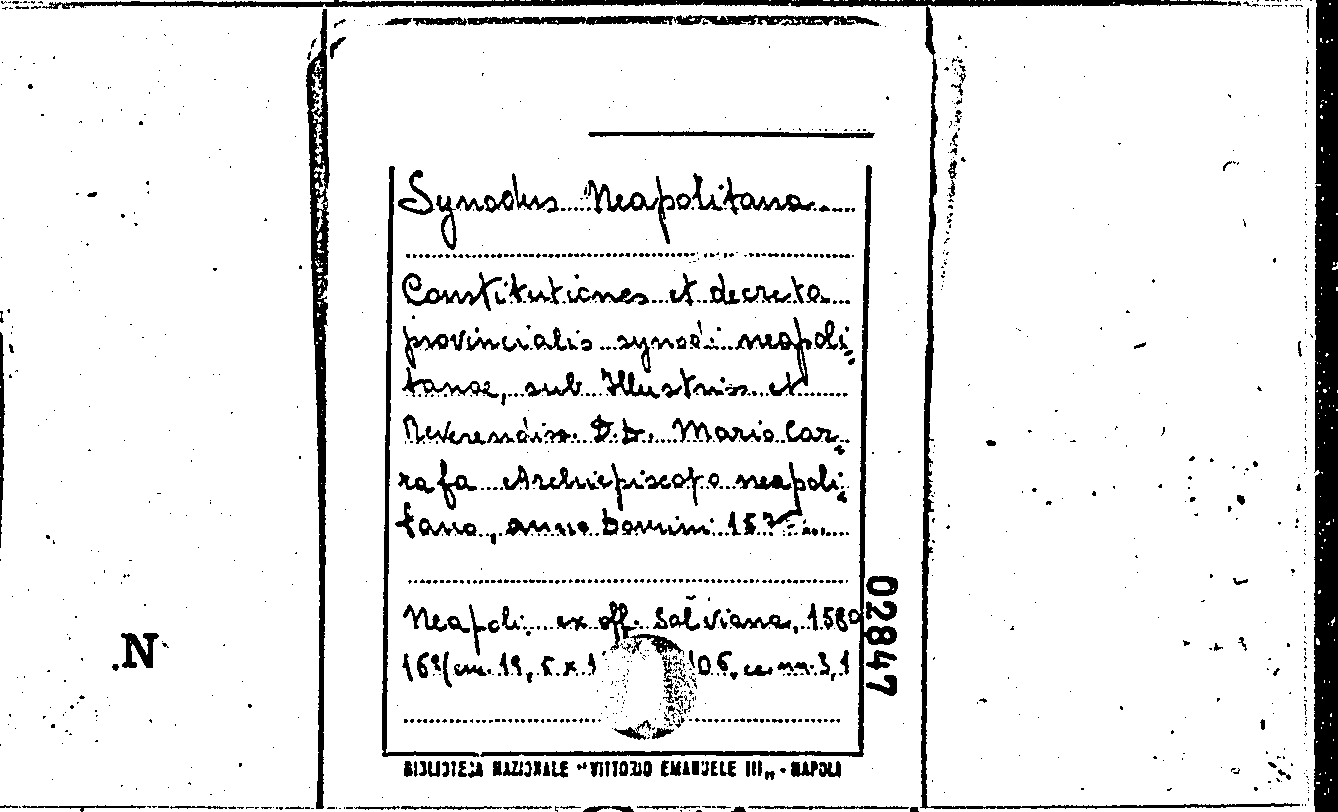 Synodus Neapolitana
Constitutiones et decreta
provincialis synodi neapoli-
tanae, sub Illustriss. et
Reverendiss. D.D. Mario Car-
rafa Archiepiscopo neapoli-
tano, anno Domini 157
Neapoli, ex off. Salviana, 1580
16º (cm. 19,5 x 1 106, cc. nn. 3,1
BIBLIOTECA NAZIONALE "VITTORIO EMANUELE III" - NAPOLI
02847
.N